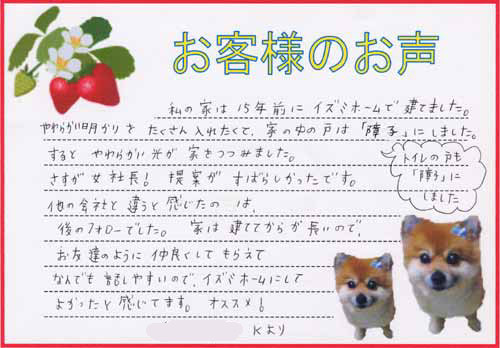 お客様のお声
私の家は15年前にイズミホームで建てました。
やわらかい明かりをたくさん入れたくて、家の中の戸は「障子」にしました。
するとやわらかい光が家をつつみました。
さすが女社長！ 提案がすばらしかったです。
トイレの戸も
「障子」に
しました
他の会社と違うと感じたのは、
後のフォローでした。 家は建ててからが長いので、
お友達のように仲良くしてもらえて
なんでも話しやすいので、イズミホームにして
よかったと感じてます。 オススメ！
Kより